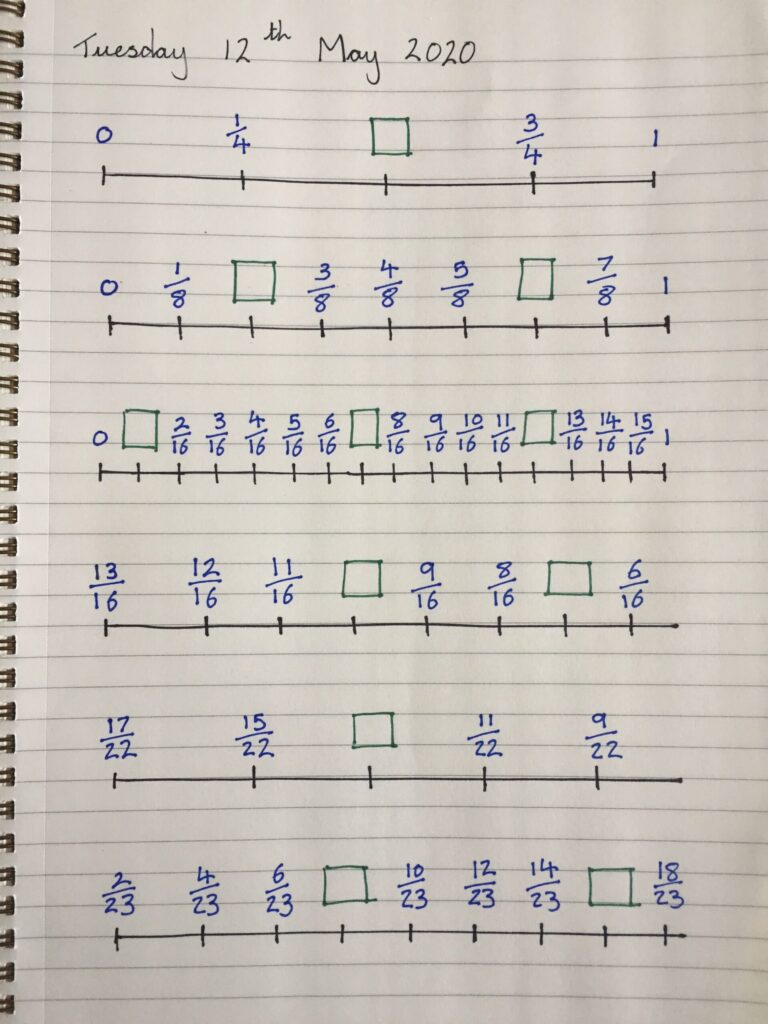 Tuesday 12th May 2020
0 1/4 □ 3/4 1
0 1/8 □ 3/8 4/8 5/8 □ 7/8 1
0 □ 2/16 3/16 4/16 5/16 6/16 □ 8/16 9/16 10/16 11/16 □ 13/16 14/16 15/16 1
13/16 12/16 11/16 □ 9/16 8/16 □ 6/16
17/22 15/22 □ 11/22 9/22
2/23 4/23 6/23 □ 10/23 12/23 14/23 □ 18/23